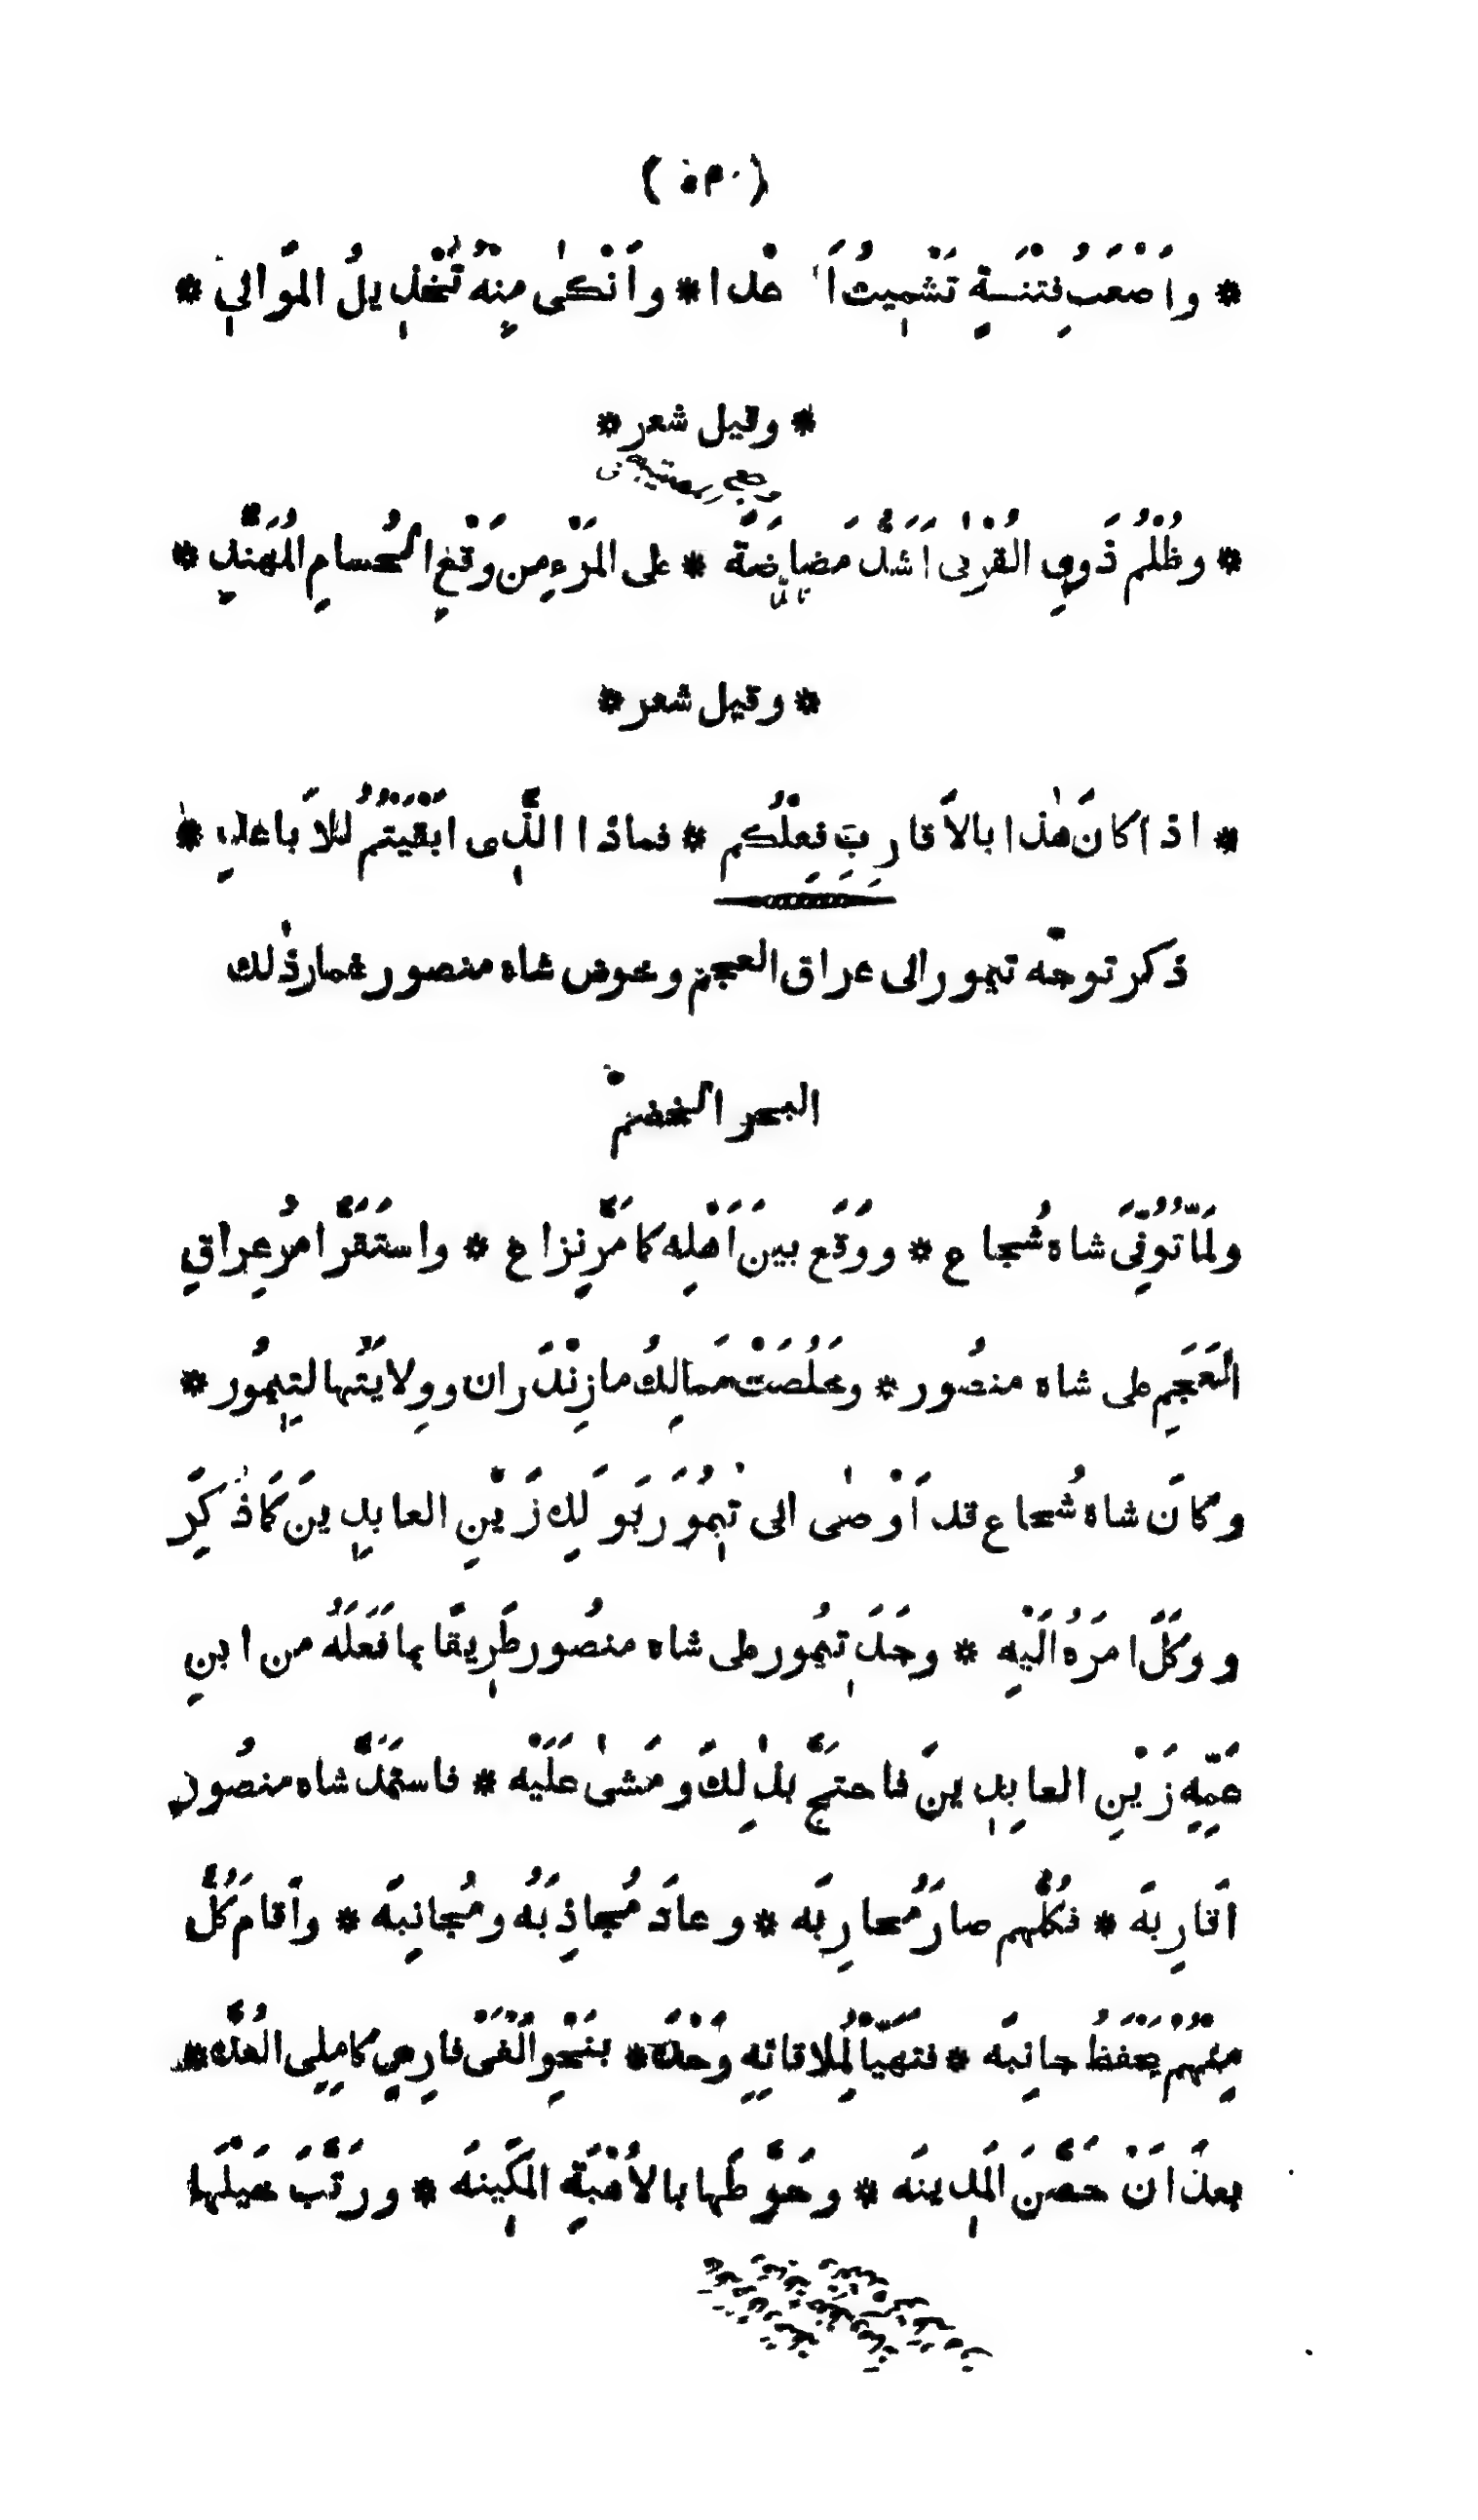 * وَاَصْعَبُ فِتْنَةٍ تَشْمِيتُ * وَاَنْكٰى مِنْهُ تَخْذِيلُ المَوَالِي *
* وقيل شعر *
* وظُلْمُ ذَوِي القُرْبٰى اَشَدُّ مَضاضَةً * على المَرْءِ مِن وَقْعِ الحُسامِ المُهَنَّدِ *
* وقيل شعر *
* اذا كانَ هٰذا بالاَقارِبِ فِعْلُكُم * فماذا الَّذِي ابَقَيْتُمُ لِلاَباعِدِ *
ذكر توجّه تيمور الى عراق العجم وخوض شاه منصور غمار ذٰلك
البحر الخضمّ
ولَمّا تُوُفِّيَ شاه شُجاع * ووَقَع بينَ اَهْلِه كما مَرَّ نِزاع * واستَقَرَّ امرُ عِراقِ
العَجَمِ على شاه منصُور * وخَلُصَتْ مَمالِكُ مازِنْدَران ووِلايَتُها لِتِيمُور *
وكانَ شاه شُجاع قد اَوْصٰى الى تِيمُورَ بَوَلَدِه زَيْنِ العابِدِينَ كَما ذُكِرَ
ووَكَلَ امرَهُ اِلَيْهِ * وجَدَ تِيمُور على شاه منصُور طَرِيقًا بما فَعَلَهُ من ابنِ
عَمِّهِ زَيْنِ العابِدِينَ فاحتَجَّ بذٰلِكَ ومَشىٰ عَلَيْه * فاستَمَدَّ شاه منصُور
اَقارِبَه * فكُلُّهم صارَ مُحارِبَه * وعادَ مُجاذِبَهُ ومُجانِبَه * واَقامَ كُلٌّ
مِنْهُمْ يَحْفَظُ جانِبَه * فتَهَيَّأَ لِمُلاقاتِهِ وَحْدَه * بنَحْوِ اَلْفَىْ فارِسٍ كامِلِى العُدَّه *
بعدَ اَنْ حَصَّنَ المَدِينَه * وحَوَّطَها بالاُهْبَةِ المَكِينَه * ورَتَّبَ خَيْلَها